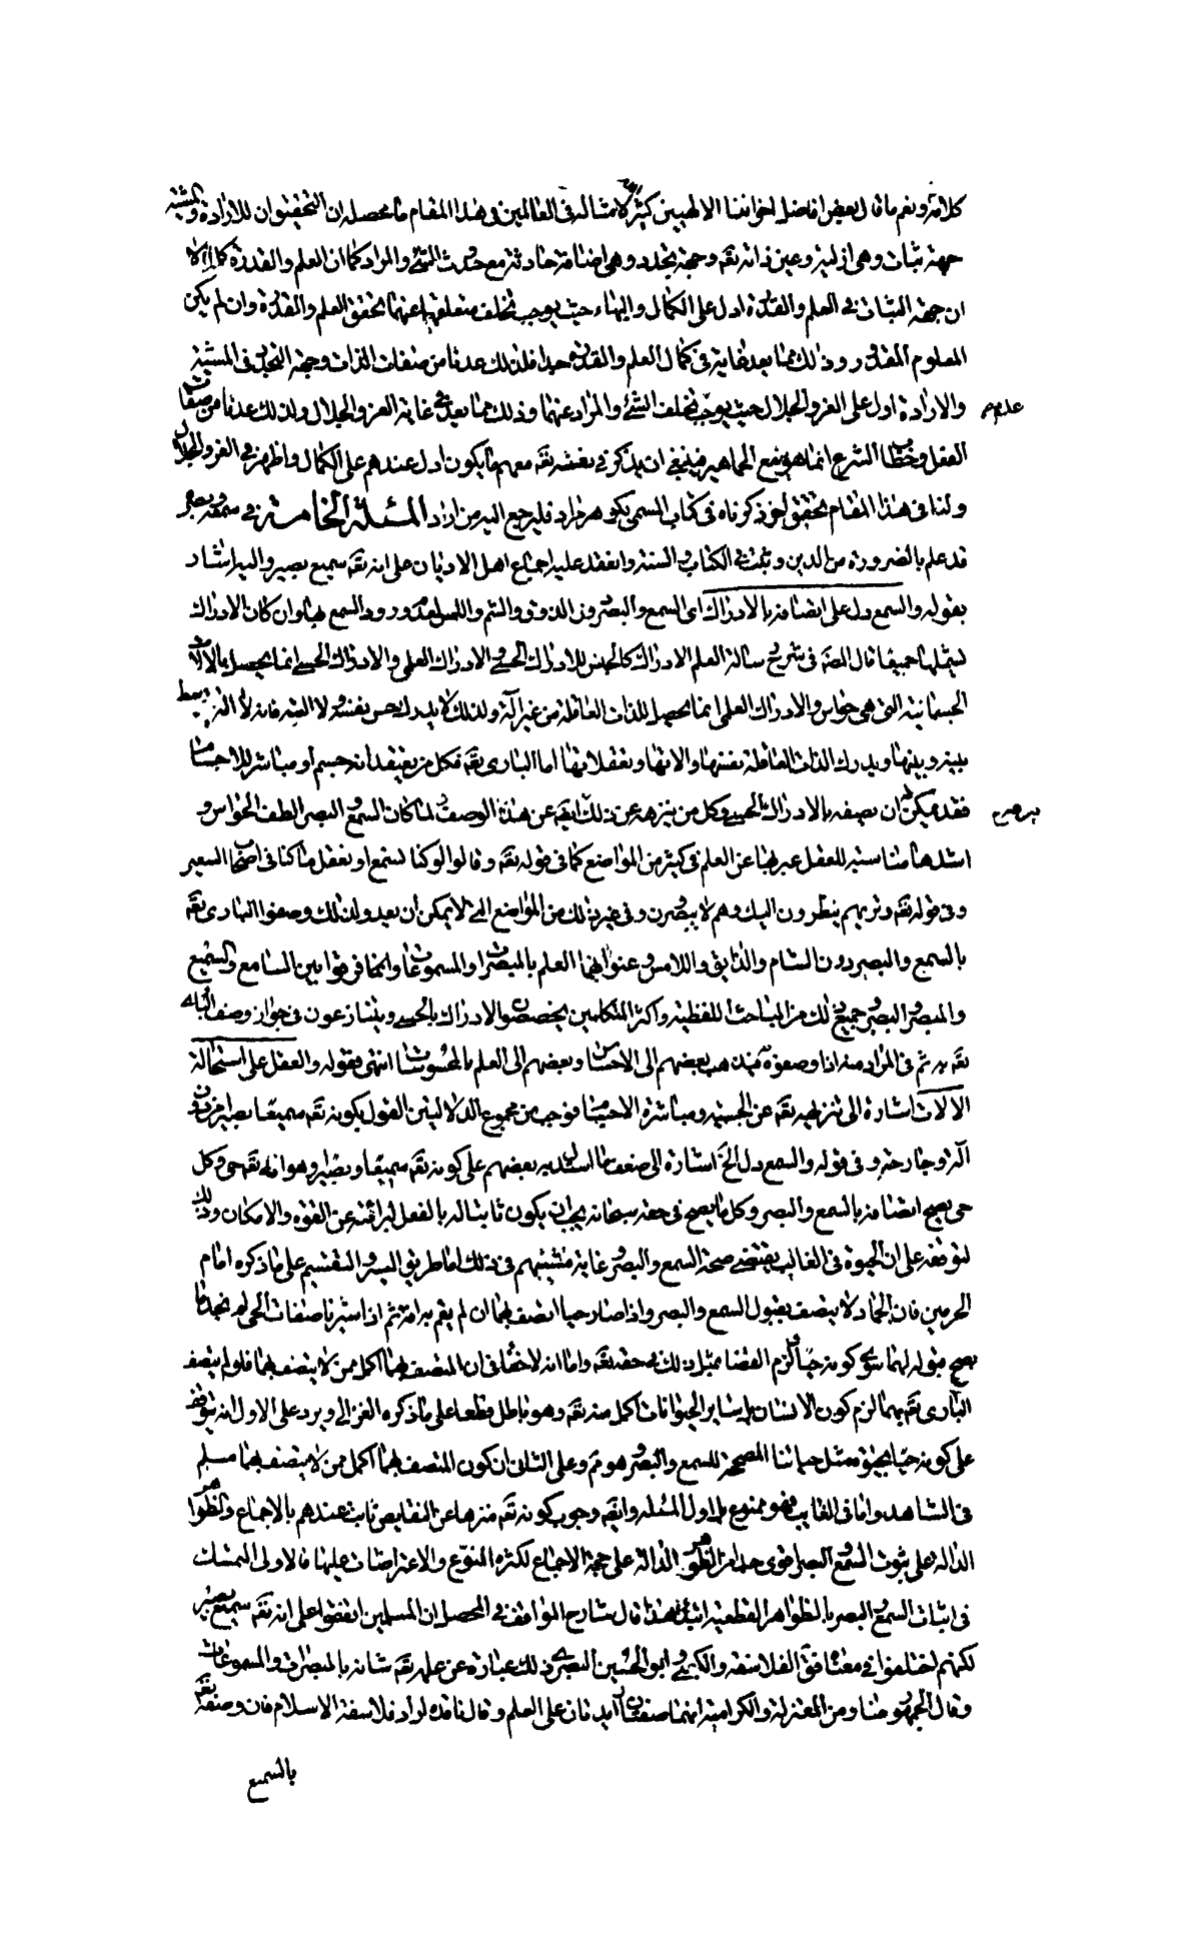 كلامه ونعم ما قال بعض افاضل اخواننا الالهيين كثر الله امثاله فى العالمين فى هذا المقام ما محصله ان التحقيق ان للارادة والمشية
جهة ثبات وهى ازلية وعين ذاته تقه وجهة تجدد وهى اضافة حادثة مع حدوث الشئ والمراد كما ان العلم والقدرة كك الا
ان جهة الثبات فى العلم والقدرة ادل على الكمال والبهاء حيث يوجب تخلف متعلقهما عنهما تحقق العلم والقدرة وان لم يكن
المعلوم المقدور وذلك مما يعد غاية فى كمال العلم والقدرة جدا فلذلك عدتا من صفات الذات وجهة التجدد فى المشية
والارادة ادل على العز والجلال حيث يوجب تخلف الشئ والمراد عنهما وذلك مما يعد فى غاية العز والجلال ولذلك عدتا من صفات
الفعل وخطاب الشرع انما هو مع الجماهير فينبغى ان يذكر فى نفسه تقه معهم ما يكون ادل عندهم على الكمال واظهر فى العز والجلال
ولنا فى هذا المقام تحقيق اخر ذكرناه فى كتاب المسمى بكوهر مراد فليرجع اليه من اراد المسئلة الخامسة فى سمعه وبصره
قد علم بالضرورة من الدين وثبت فى الكتاب والسنة وانعقد عليه اجماع اهل الاديان على انه تقه سميع بصير واليه اشار
بقوله والسمع دل على اتصافه بالادراك اى السمع والبصر دون الذوق والشم واللمس لعدم ورود السمع بها وان كان الادراك
يشملها جميعا قال المصه فى شرح رسالة العلم الادراك كالجنس للادراك الحسى والادراك العلمى والادراك الحسى انما يحصل بالالات
الجسمانية التى هى حواس والادراك العلمى انما يحصل للذات العاقلة من غير آلة ولذلك لا يدرك حس نفسه ولا آلته فانه لا آلة يتوسط
بينه وبينها ويدرك الذات العاقلة نفسها والاتها وتعقلاتها اما البارى تقه فكل من يعتقد انه جسم او مباشر للاجسام
فقد يمكن له ان يصفه بالادراك الحسى وكل من ينزهه عن ذلك ينزهه عن هذا الوصف ولما كان السمع والبصر الطف الحواس و
اشدها مناسبة للعقل عبر بهما عن العلم فى كثير من المواضع كما فى قوله تقه وقالوا لو كنا نسمع او نعقل ما كنا فى اصحاب السعير
وفى قوله تقه وتريهم ينظرون اليك وهم لا يبصرون وفى غير ذلك من المواضع التى لا يمكن ان يعد ولذلك وصفوا البارى تقه
بالسميع والبصير دون الشام والذايق واللامس وعنوا بهما العلم بالمبصرات والمسموعات وانما فرقوا بين السامع والسميع
والمبصر والبصير وجميع ذلك من المباحث اللفظية واكثر المتكلمين يخصصون الادراك بالحسى ويتنازعون فى جواز وصف البارى
تقه به ثم فى المراد منه اذا وصفوه به فيذهب بعضهم الى الاحساس وبعضهم الى العلم بالمحسوسات انتهى بقوله والعقل على استحالة
الالات اشارة الى تنزيهه تقه عن الجسمية ومباشرة الاجسام فوجب من مجموع الدلالتين القول بكونه تقه سميعا بصيرا من دون
آلة وجارحة وفى قوله والسمع دل الخ اشارة الى ضعف ما استدل به بعضهم على كونه تقه سميعا وبصيرا وهو انه تقه حى وكل
حى يصح اتصافه بالسمع والبصر وكل ما يصح فى حقه سبحانه يجب ان يكون ثابتا له بالفعل لبرائته عن القوة والامكان وذلك
لتوقفه على ان الحيوة فى الغايب يقتضى صحة السمع والبصر وغاية متشبثهم فى ذلك اما طريق السبر والتقسيم على ما ذكره امام
الحرمين فان الجماد لا يتصف بقبول السمع والبصر واذا صار حيا اتصف بهما ان لم يقم به افة ثم اذا سبرنا صفات الحى لم نجد ما
يصح قبوله لهما سوى كونه حيا ولزم القضاء بمثل ذلك فى حقه تقه واما انه لا خفاء فى ان المتصف بهما اكمل ممن لا يتصف بهما فلو لم يتصف
البارى تقه بهما لزم كون الانسان بل ساير الحيوانات اكمل منه تقه وهو باطل قطعا على ما ذكره الغزالى ويرد على الاول انه يتوقف
على كونه حيا بحيوة مثل حياتنا المصححة للسمع والبصر وهو مم وعلى الثانى ان كون المتصف بهما اكمل ممن لا يتصف بهما مسلم
فى الشاهد واما فى الغايب فهو ممنوع بل اول المسئلة وايضه وجوب كونه تقه منزها عن النقايص ثابت عندهم بالاجماع والظواهر
الدالة على ثبوت السمع والبصر اقوى جدا من الظواهر الدالة على حجية الاجماع لكثرة المنوع والاعتراضات عليها فالاولى التمسك
فى اثبات السمع والبصر بالظواهر القطعية ابتداء هذا قال شارح المواقف فى المحصل ان المسلمين اتفقوا على انه تقه سميع بصير
لكنهم اختلفوا فى معناه فق الفلاسفة والكعبى وابو الحسين البصرى ذلك عبارة عن علمه تقه شانه بالمبصرات والمسموعات
وقال الجمهور منا ومن المعتزلة والكرامية انهما صفتان زايدتان على العلم وقال ناقده اراد فلاسفة الاسلام فان وصفه تقه
بالسميع